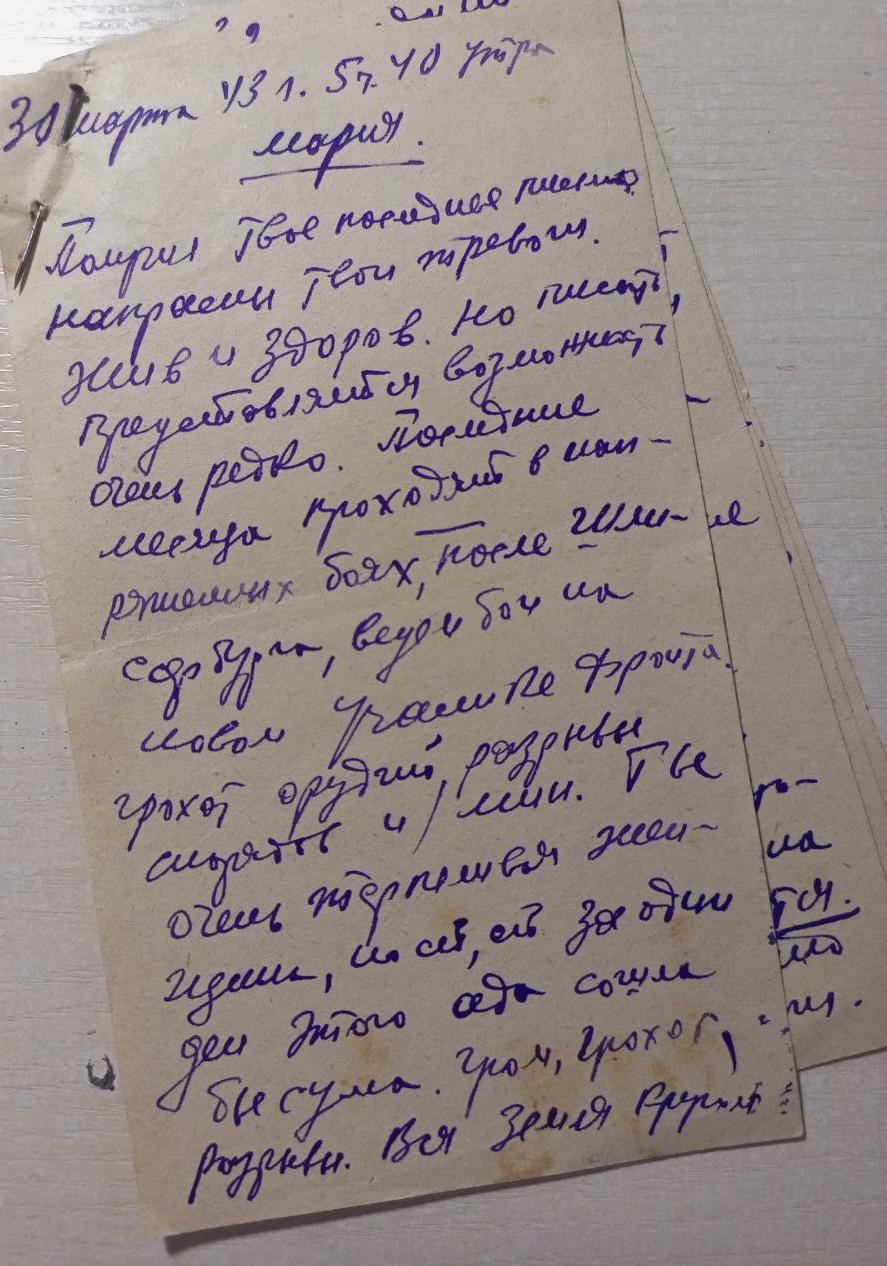 31 марта 43 г. 5 ч. 40 утра
Мария.
Получил Твое последнее письмо
напрасны Твои тревоги.
Жив и здоров. Но писать,
предоставляется возможность
очень редко. Последние
месяца проходят в нап-
ряженных боях, после Шли-
сербурга, ведем бои на
новом участке фронта.
грохот орудий, разрывы
снарядов и мин. Ты
очень терпеливая жен-
щина, но за один
ден этого ада сошла
бы сума. Гром, грохот,
разрывы. Вся земля кругом